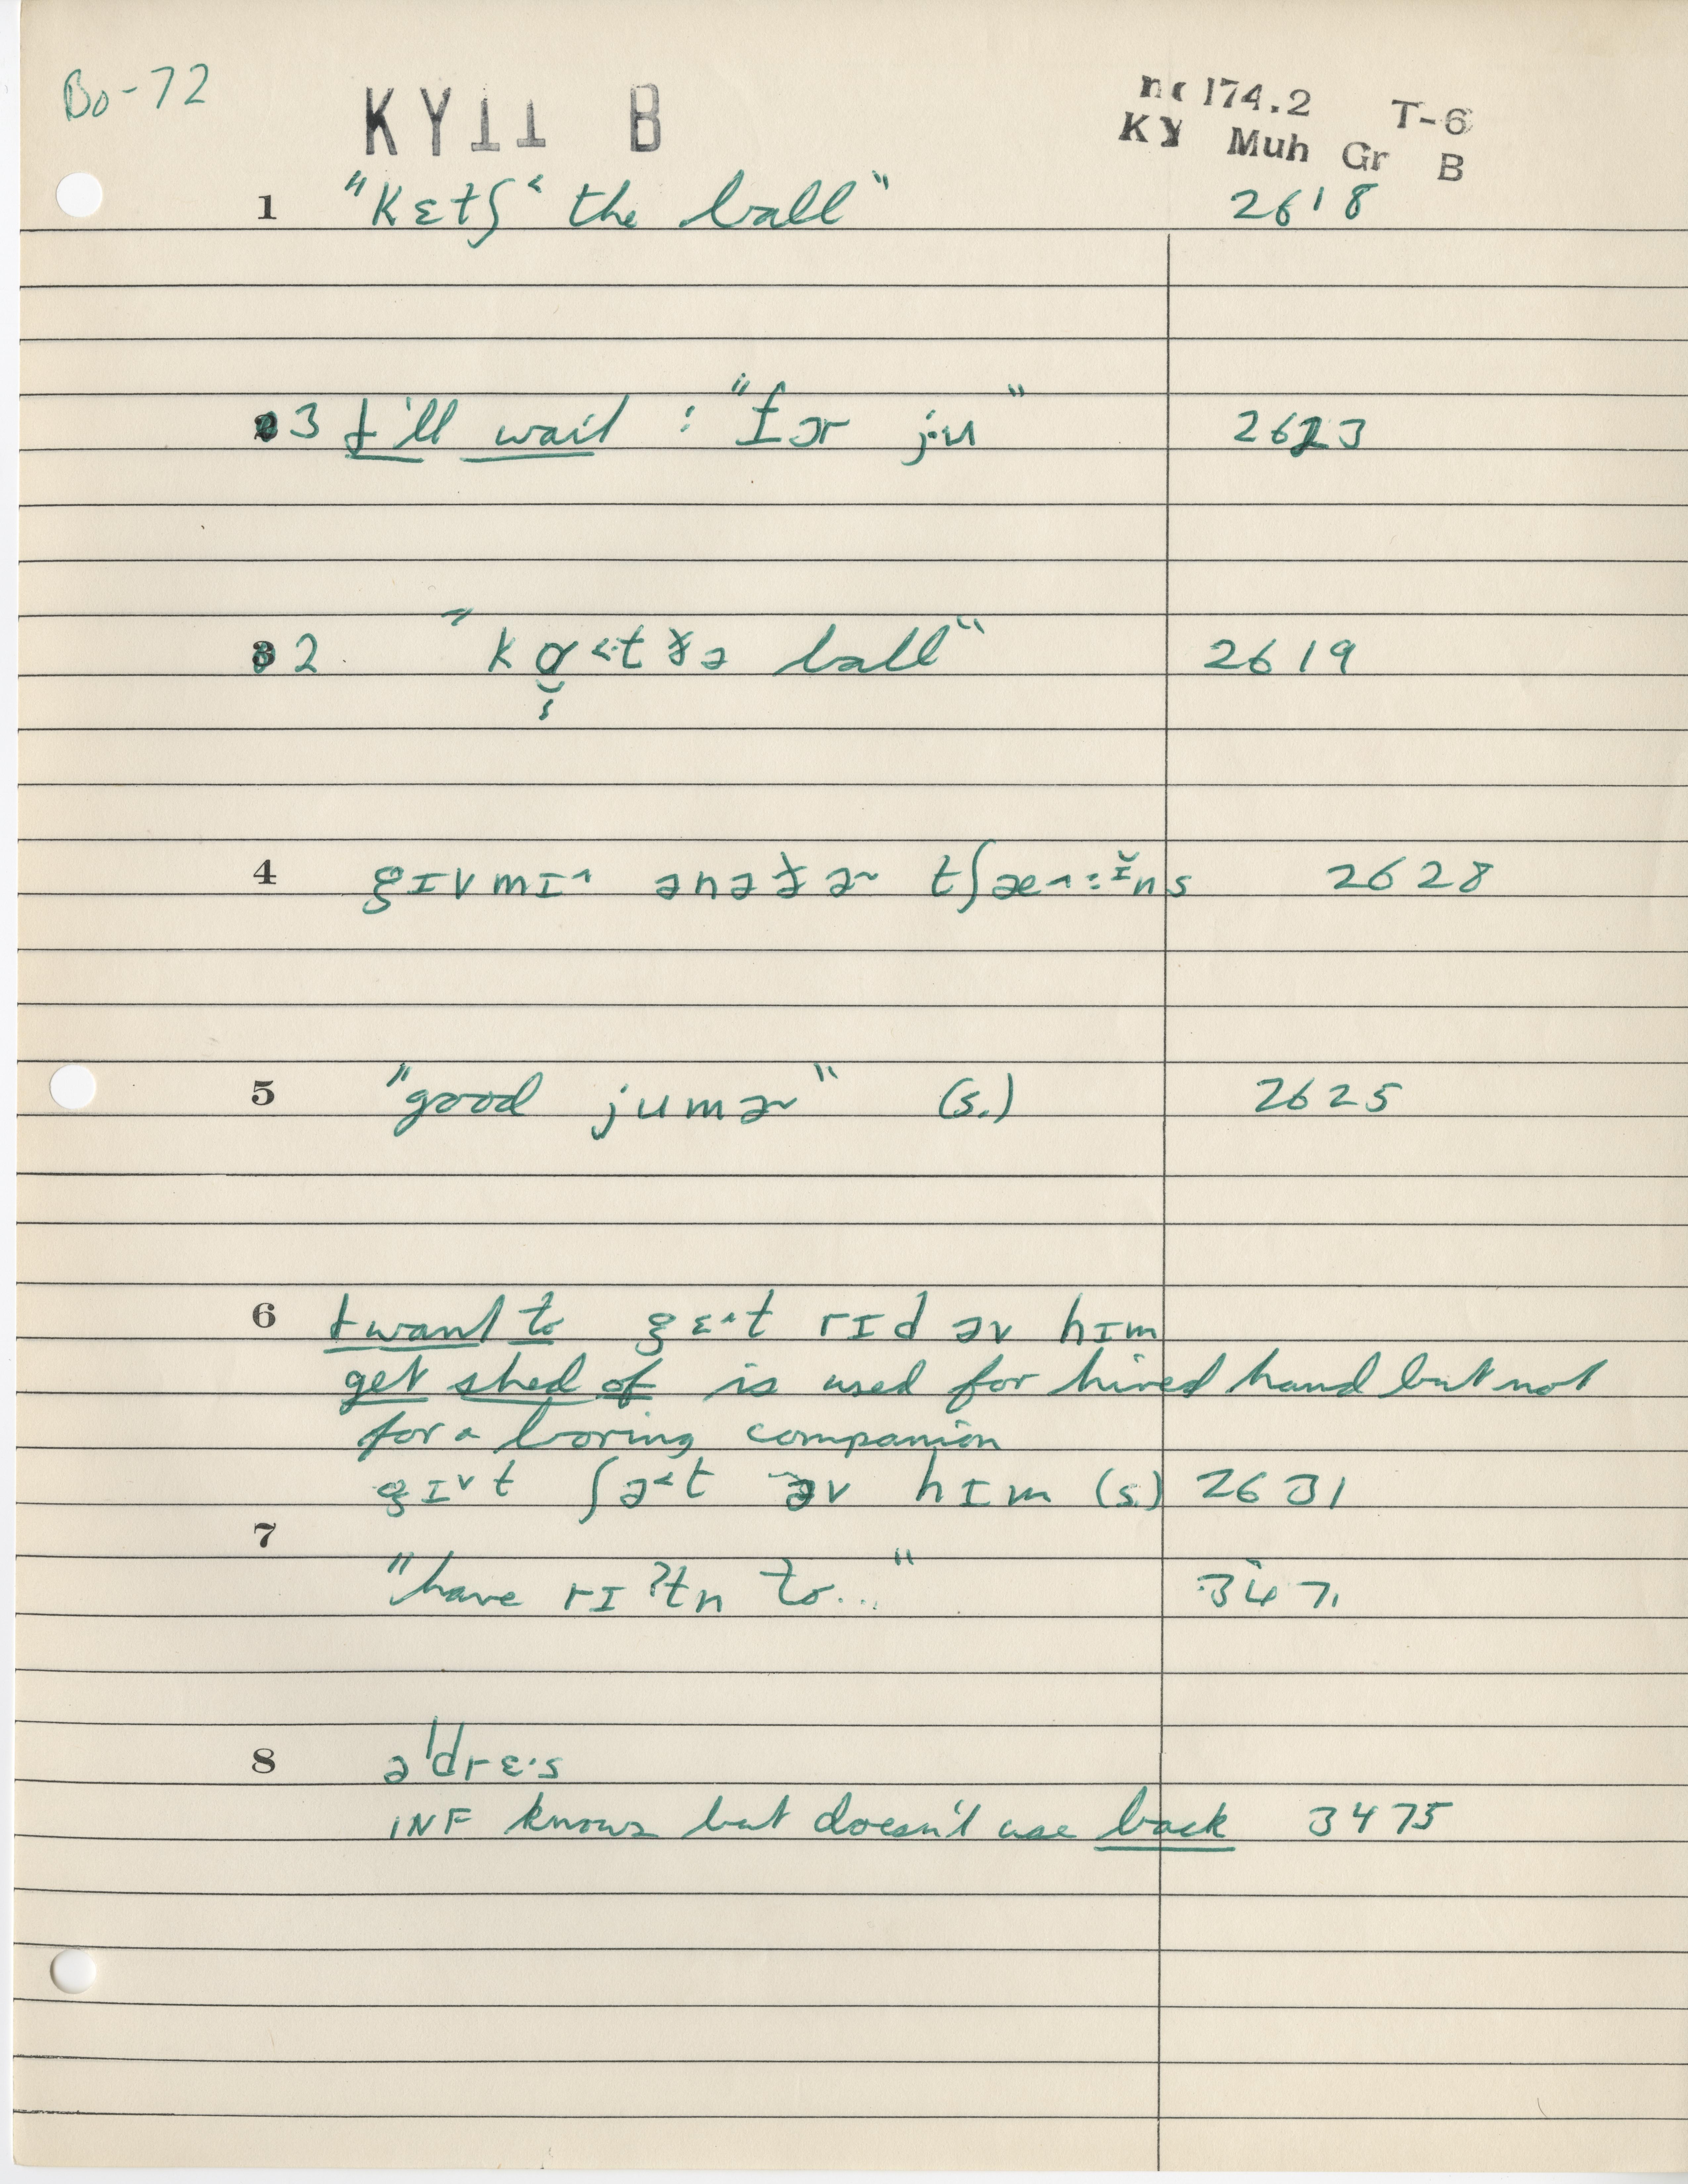 Bo-72
KY11 B
174.2 T-6
KY Muh Gr B
1 "kɛtʃ˂ the ball" 2618
3 I'll wait : "fɔr ju" 2623
2 "kɑ˂t ðə ball" 2619
4 gɪvmɪ˄ ənəðɚ tʃæ˄:ɪ̆ns 2628
5 "good jumɚ" (s.) 2625
6 I want to gɛ˄t rɪd əv hɪm
get shed of is used for hired hand but not
for a boring companion
gɪ˅t ʃə˂t əv hɪm (s) 2631
7
"have rɪʔtn to..." 3471
8 əˈdrɛ·s
INF knows but doesn't use back 3475